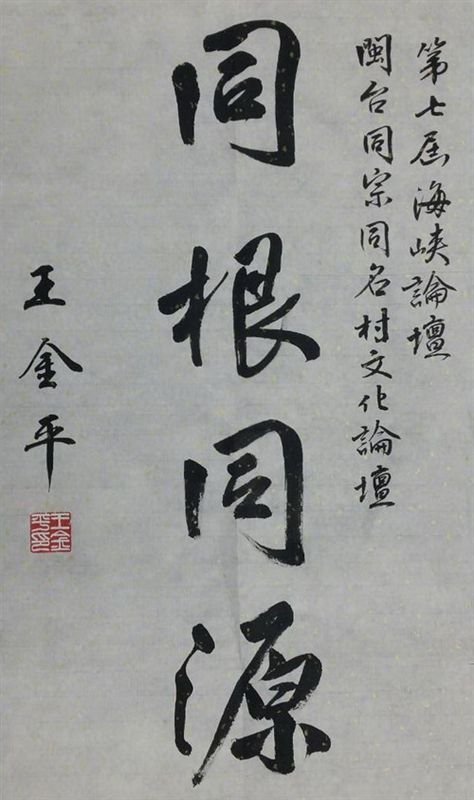 第七屆海峽論壇
閩台同宗同名村文化論壇
同根同源
王金平
王金平印